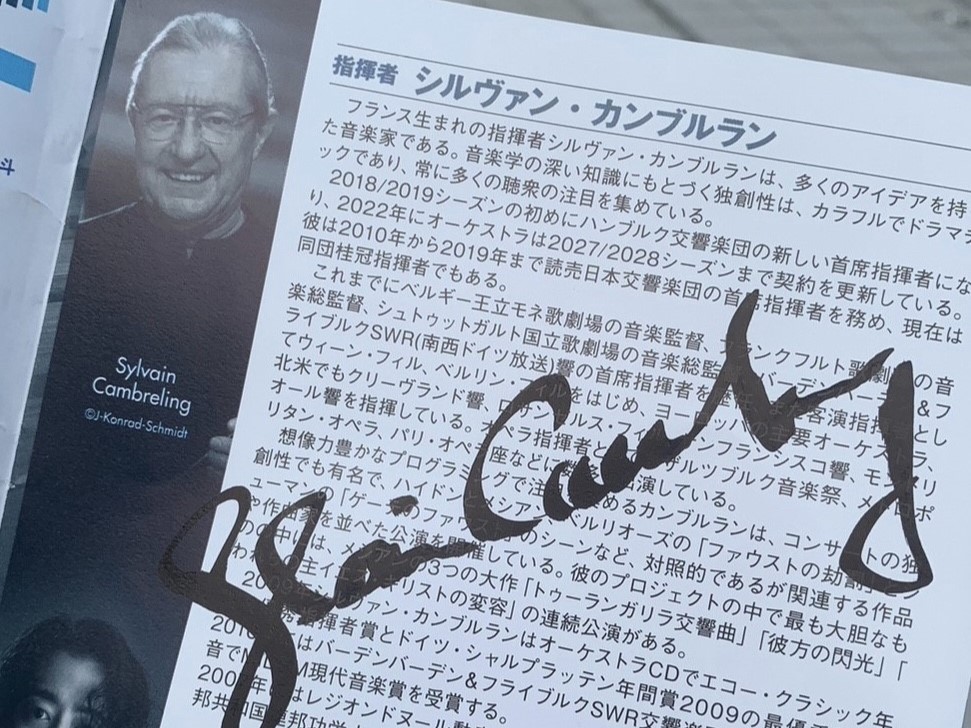 斗
Sylvain
Cambreling
©J-Konrad-Schmidt
指揮者 シルヴァン・カンブルラン
フランス生まれの指揮者シルヴァン・カンブルランは、多くのアイデアを持
た音楽家である。音楽学の深い知識にもとづく独創性は、カラフルでドラマチ
ックであり、常に多くの聴衆の注目を集めている。
2018/2019シーズンの初めにハンブルク交響楽団の新しい首席指揮者にな
り、2022年にオーケストラは2027/2028シーズンまで契約を更新している。
彼は2010年から2019年まで読売日本交響楽団の首席指揮者を務め、現在は
同団桂冠指揮者でもある。
これまでにベルギー王立モネ歌劇場の音楽監督、フランクフルト歌劇場の音
楽総監督、シュトゥットガルト国立歌劇場の音楽総監督、バーデンバーデン&フ
ライブルクSWR(南西ドイツ放送)響の首席指揮者を歴任、また客演指揮者とし
てウィーン・フィル、ベルリン・フィルをはじめ、ヨーロッパの主要オーケストラ、
北米でもクリーヴランド響、ロサンゼルス・フィル、サンフランシスコ響、モントリ
オール響を指揮している。オペラ指揮者として、ザルツブルク音楽祭、メトロポ
リタン・オペラ、パリ・オペラ座などに 出演している。
想像力豊かなプログラミングで注目を集めるカンブルランは、コンサートの独
創性でも有名で、ハイドンとメシアン、ベルリオーズの「ファウストの劫罰」とシ
ューマンの「ゲーテのファウストからのシーンなど、対照的であるが関連する作品
や作曲家を並べた公演を開催している。彼のプロジェクトの中で最も大胆なも
のの中には、メシアンの3つの大作「トゥーランガリラ交響曲」「彼方の閃光」「
わ 主イエス・キリストの変容」の連続公演がある。
2009年シルヴァン・カンブルランはオーケストラCDでエコー・クラシック年
指揮者賞とドイツ・シャルプラッテン年間賞2009の最優
2010 はバーデンバーデン&フライブルクSWR交響楽
音でM M現代音楽賞を受賞する。
200 年 はレジオンドヌール勲
邦共和国